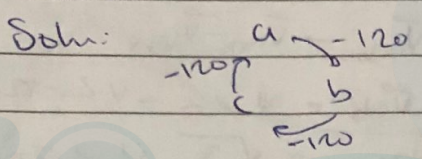 Soln: a -120
-120
c b
-120